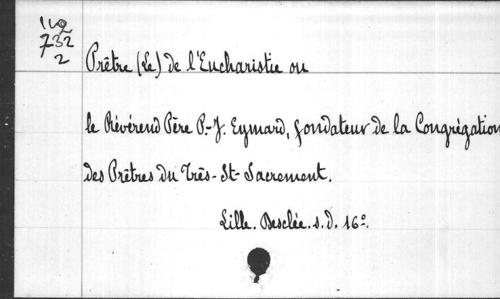 732
2
Prêtre (Le) de l'Eucharistie ou
le Révérend Père P.-J. Eymard, fondateur de la Congrégation
des Prêtres du Très-St-Sacrement.
Lille. Desclée. s.d. 16º.